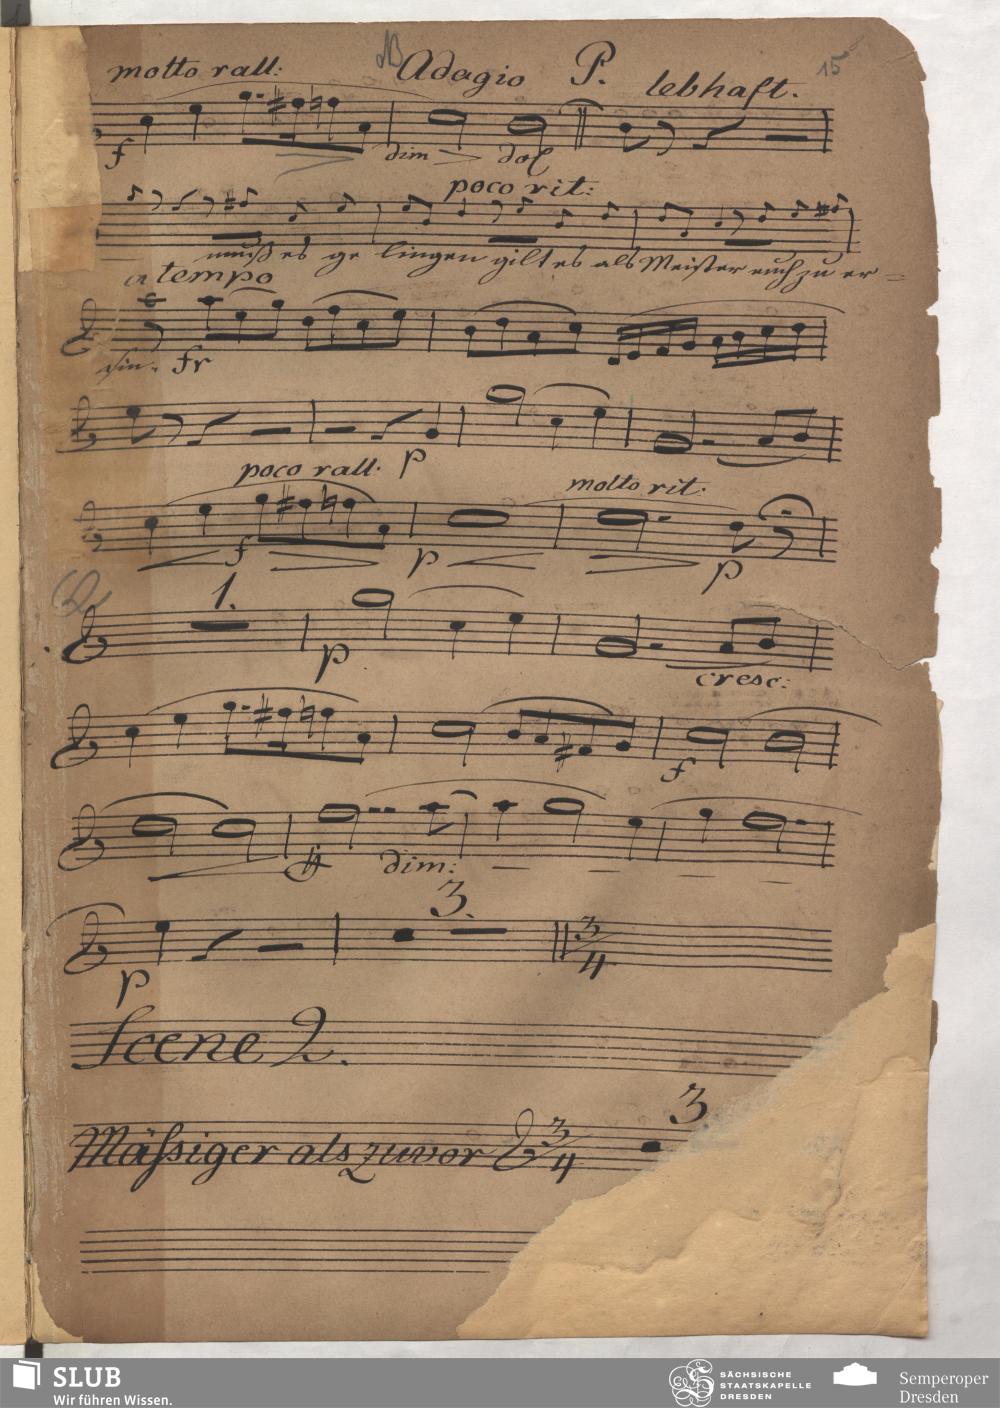 NB
15
motto rall: Adagio P. lebhaft.
f dim dol
poco rit:
muß es ge lingen gilt es als Meister euch zu er =
a tempo
fr
p
poco rall: molto rit:
f p p
1.
p cresc:
f
dim:
3.
p 3/4
Scene 2.
Mäßiger als zuvor 3/4 3
SLUB
Wir führen Wissen.
SÄCHSISCHE
STAATSKAPELLE
DRESDEN
Semperoper
Dresden